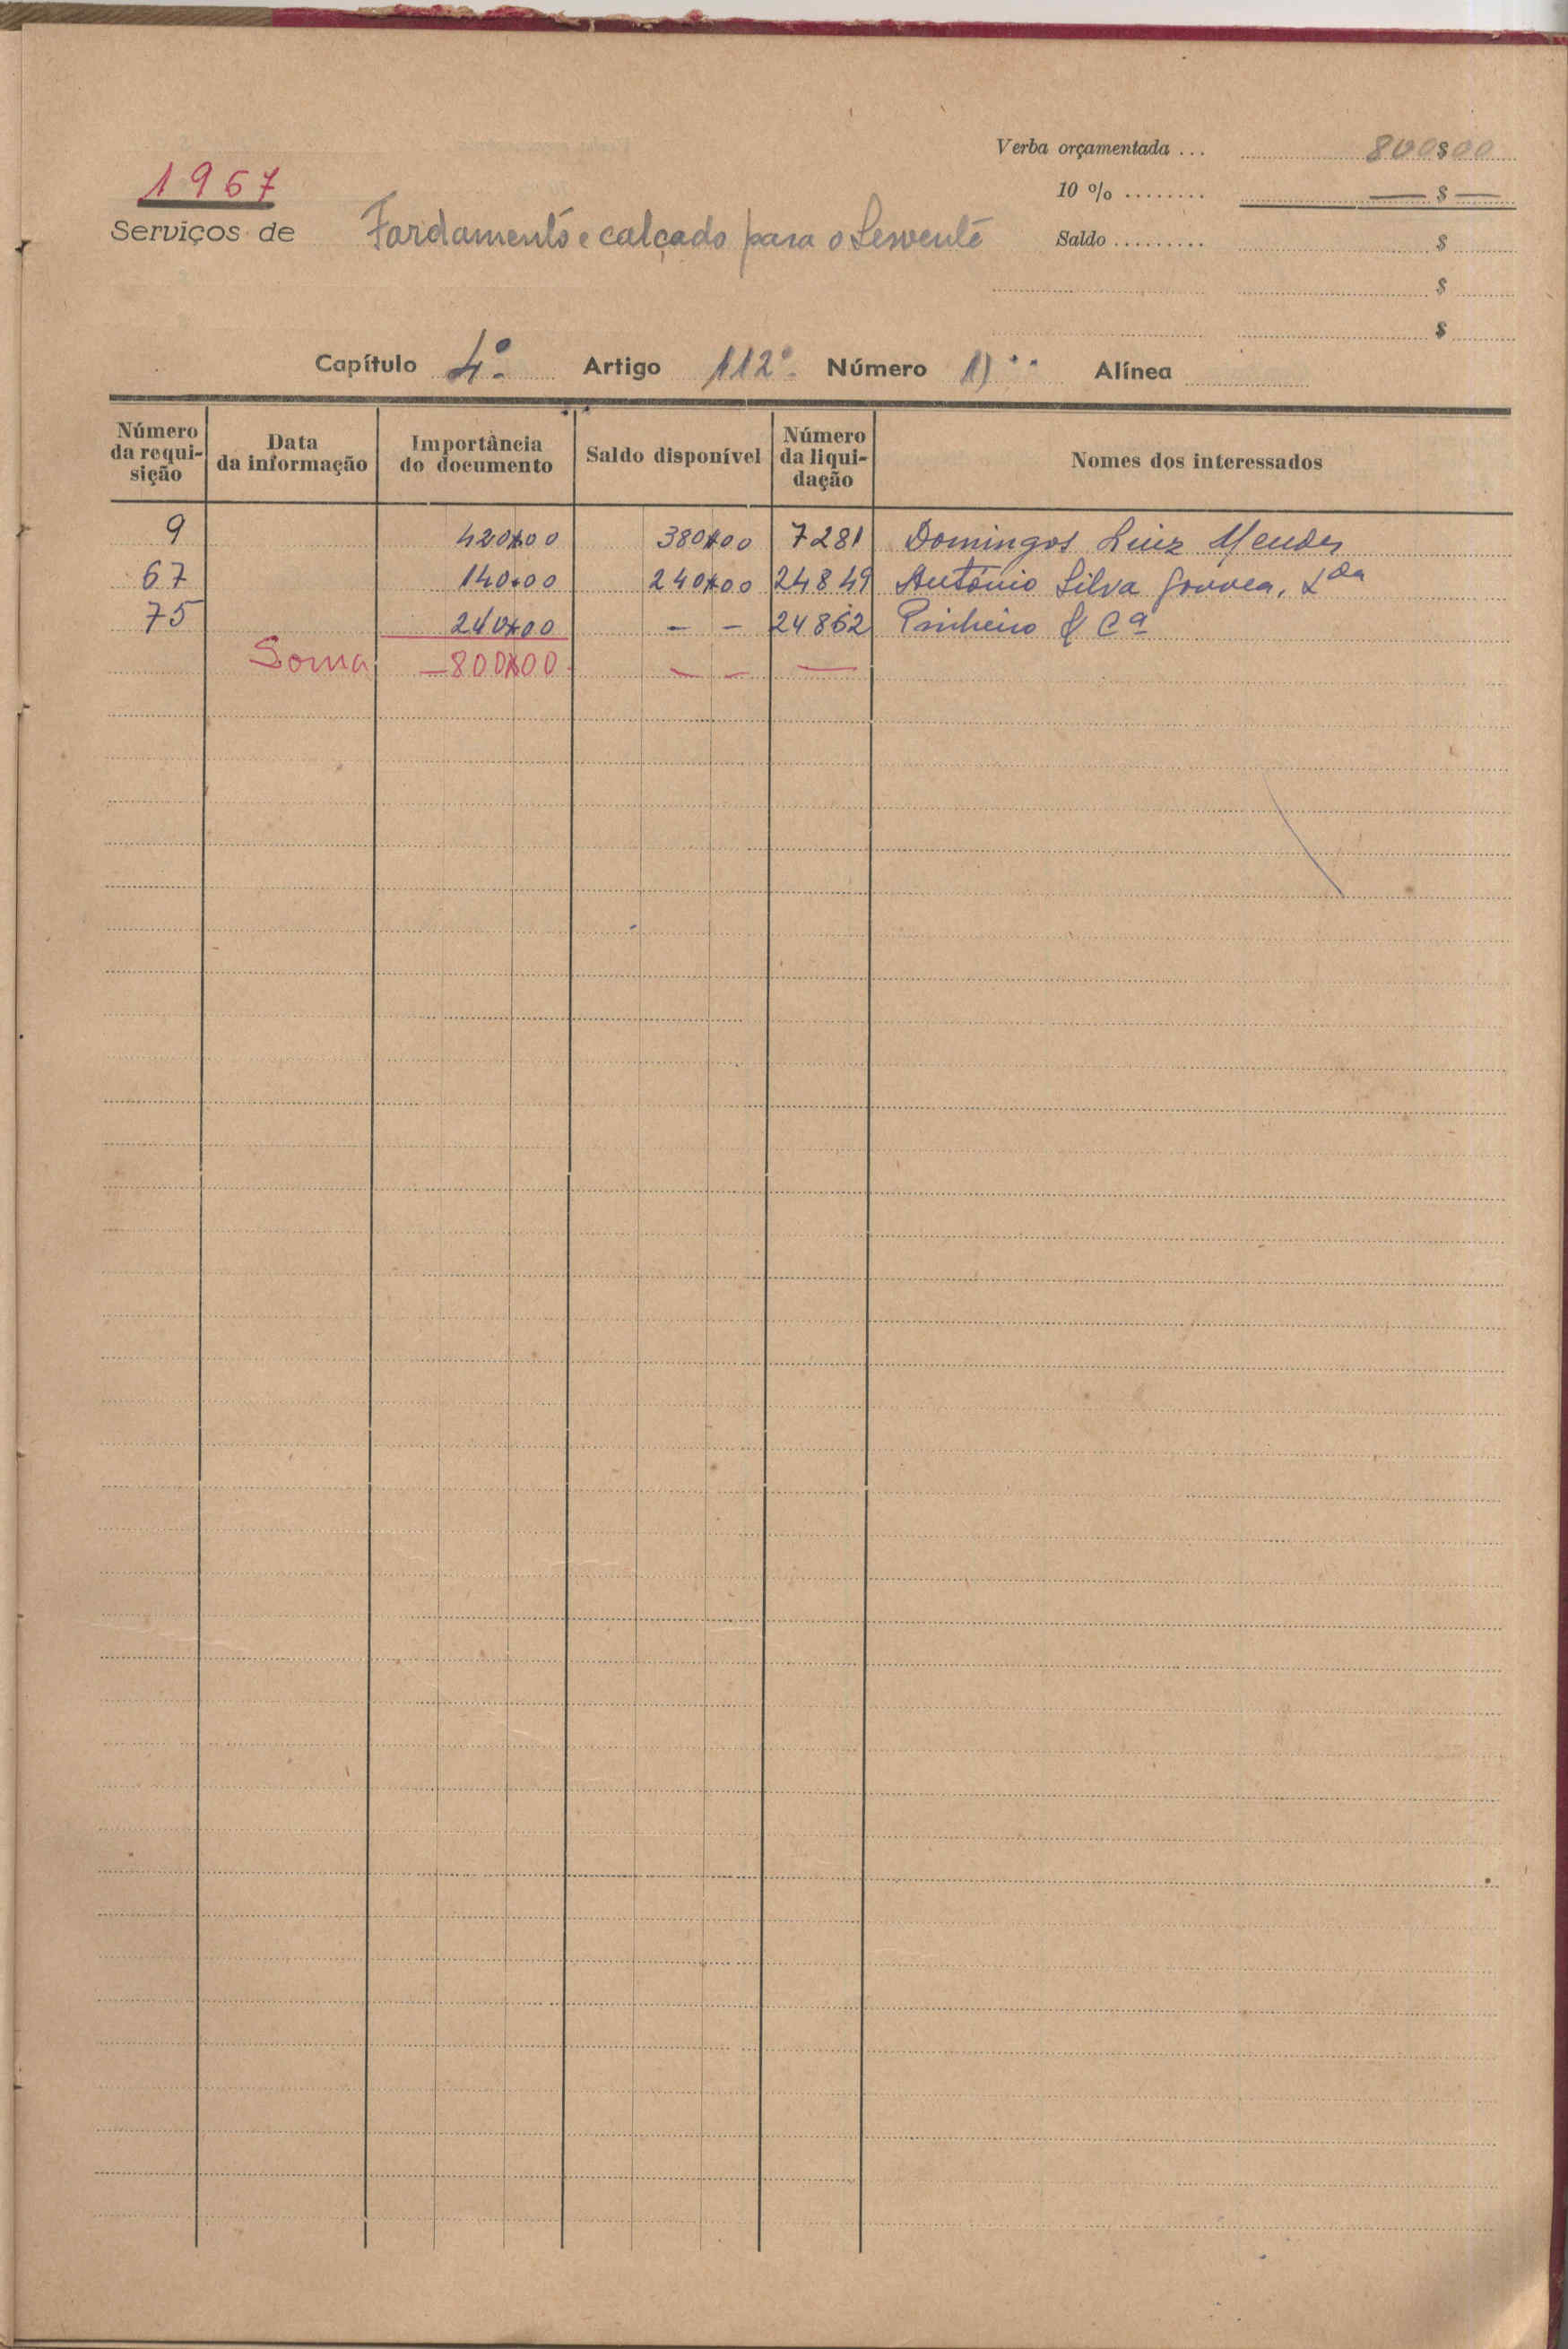 Verba orçamentada ... 800$00
1967
10 % ........ — $ —
Serviços de Fardamento e calçado para o Servente
Saldo ......... $
$
$
Capítulo 4.º Artigo 112.º Número 1) Alínea
Número da requi-sição
Data da informação
Importância do documento
Saldo disponível
Número da liqui-dação
Nomes dos interessados
9 420$00 380$00 7281 Domingos Luiz Mendes
67 140$00 240$00 24849 António Silva Gouvea, Lda
75 240$00 — — 24862 Pinheiro & Cª
Soma — 800$00 — — —